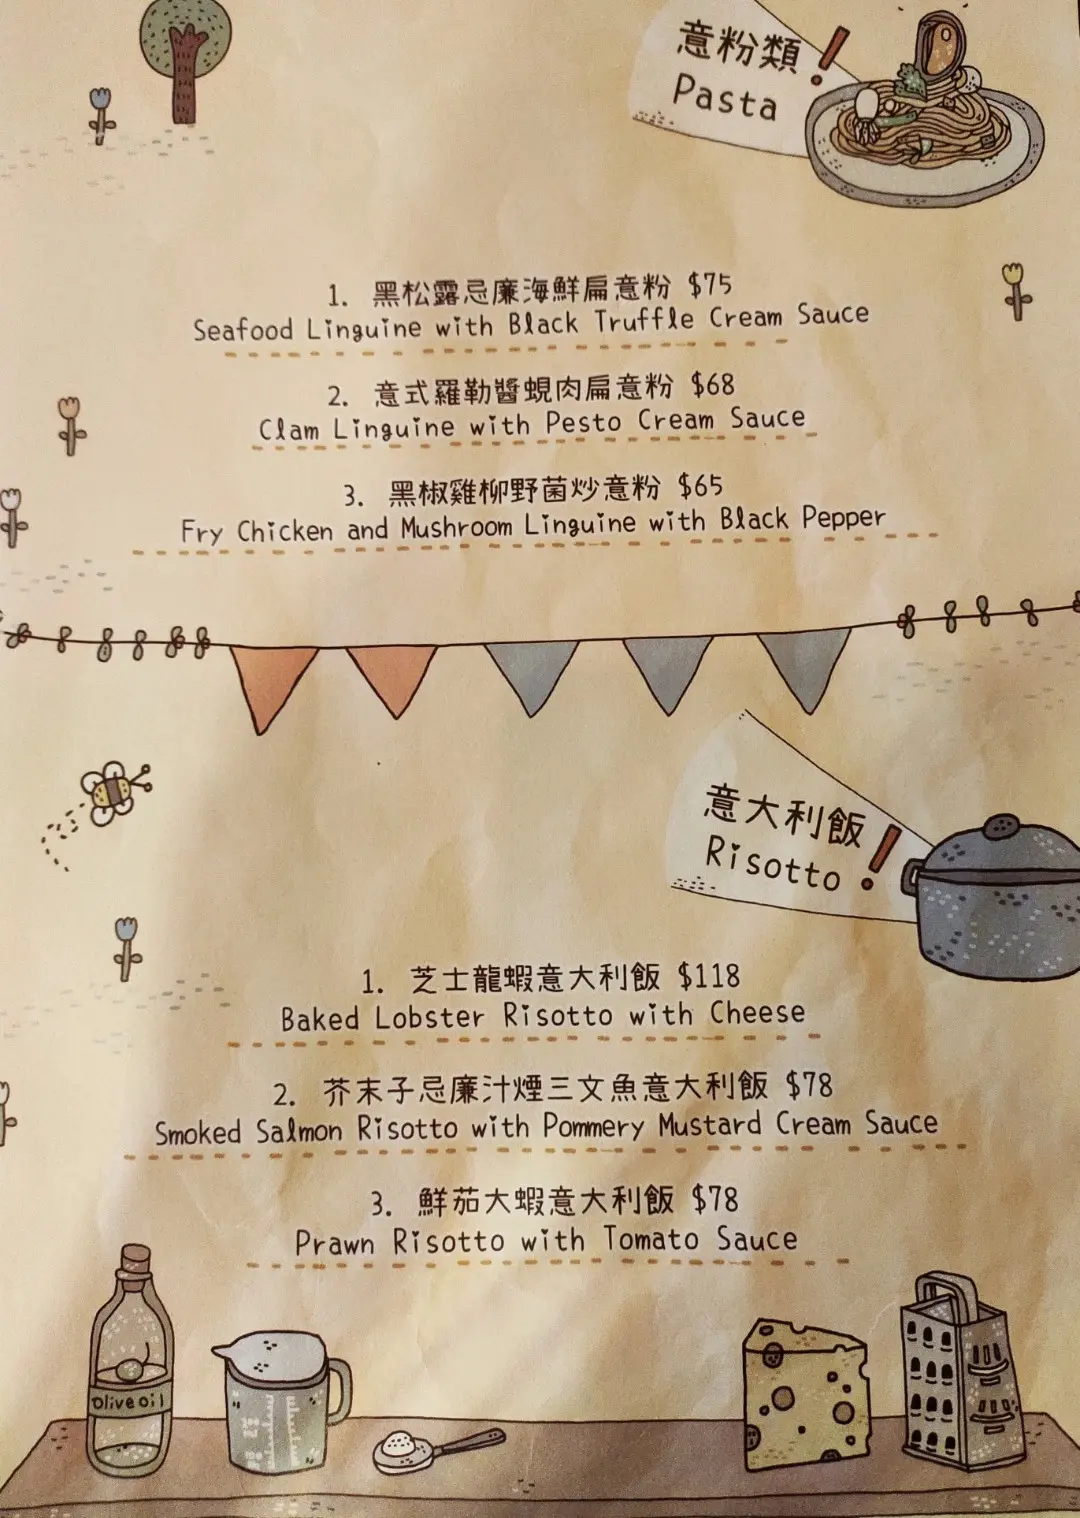 意粉類!
Pasta
1. 黑松露忌廉海鮮扁意粉 $75
Seafood Linguine with Black Truffle Cream Sauce
2. 意式羅勒醬蜆肉扁意粉 $68
Clam Linguine with Pesto Cream Sauce
3. 黑椒雞柳野菌炒意粉 $65
Fry Chicken and Mushroom Linguine with Black Pepper
意大利飯!
Risotto
1. 芝士龍蝦意大利飯 $118
Baked Lobster Risotto with Cheese
2. 芥末子忌廉汁煙三文魚意大利飯 $78
Smoked Salmon Risotto with Pommery Mustard Cream Sauce
3. 鮮茄大蝦意大利飯 $78
Prawn Risotto with Tomato Sauce
Olive oil